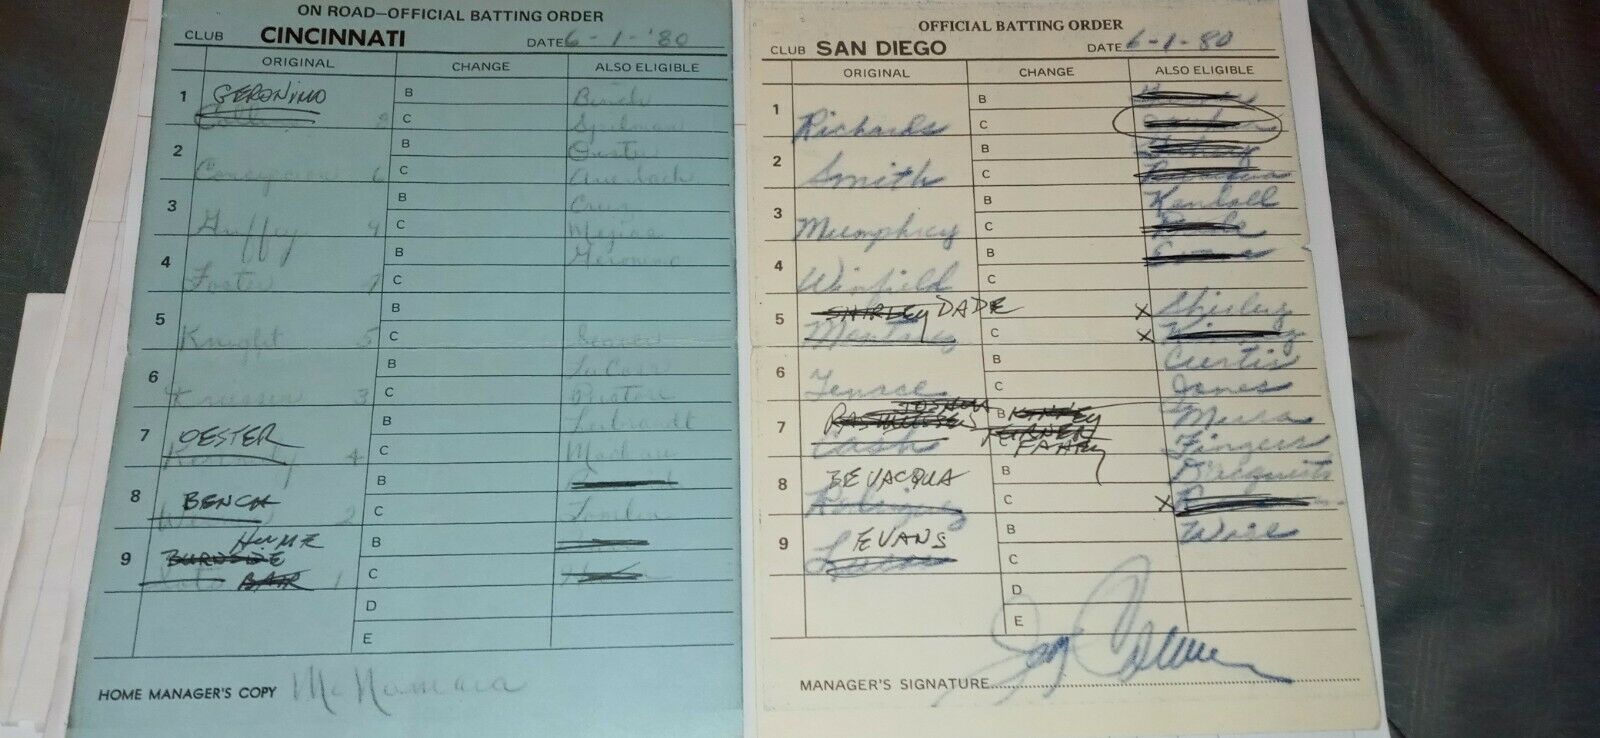 ON ROAD—OFFICIAL BATTING ORDER
CLUB CINCINNATI DATE 6-1-'80
ORIGINAL CHANGE ALSO ELIGIBLE
1 GERONIMO B Bench
Collins 8 C Spilman
2 B Oester
Concepcion 6 C Auerbach
3 B Cruz
Griffey 9 C Mejias
4 B Geronimo
Foster 7 C
5 B
Knight 5 C Seaver
6 B LaCoss
Driessen 3 C Pastore
7 OESTER B Leibrandt
Kennedy 4 C Moskau
8 BENCH B
2 C Tomlin
9 HUME B
BURNSIDE
BAIR 1 C
D
E
HOME MANAGER'S COPY McNamara
OFFICIAL BATTING ORDER
CLUB SAN DIEGO DATE 6-1-80
ORIGINAL CHANGE ALSO ELIGIBLE
1 B
Richards C
2 B
Smith C
3 B Kendall
Mumphrey C
4 B
Winfield C
5 SHIRLEY DADE B X Shirley
Montanez C X
6 B Curtis
Tenace C Jones
7 RASMUSSEN B KINNEY Mura
Cash C FAHEY Fingers
8 BEVACQUA B
Rodriguez C X
9 EVANS B Wise
C
D
E
MANAGER'S SIGNATURE Jerry Coleman